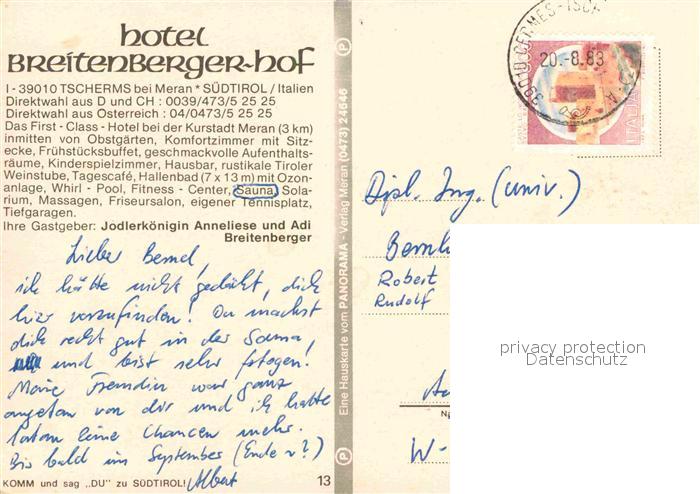 hotel
BREITENBERGER-HOF
I - 39010 TSCHERMS bei Meran * SÜDTIROL / Italien
Direktwahl aus D und CH : 0039/473/5 25 25
Direktwahl aus Osterreich : 04/0473/5 25 25
Das First - Class - Hotel bei der Kurstadt Meran (3 km)
inmitten von Obstgärten, Komfortzimmer mit Sitz-
ecke, Frühstücksbuffet, geschmackvolle Aufenthalts-
räume, Kinderspielzimmer, Hausbar, rustikale Tiroler
Weinstube, Tagescafé, Hallenbad (7 x 13 m) mit Ozon-
anlage, Whirl - Pool, Fitness - Center, Sauna, Sola-
rium, Massagen, Friseursalon, eigener Tennisplatz,
Tiefgaragen.
Ihre Gastgeber: Jodlerkönigin Anneliese und Adi
Breitenberger
Lieber Bernd,
ich hätte nicht gedacht, dich
hier vorzufinden! Du machst
dich recht gut in der Sauna,
und bist sehr fotogen!
Meine Freundin war ganz
angetan von dir und ich hatte
fatan keine Chancen mehr.
Bis bald im September (Ende ?)
Albert
KOMM und sag „DU" zu SÜDTIROL!
13
Eine Hauskarte vom PANORAMA - Verlag Meran (0473) 24646
P
P
39010 CERMES-TSCH
20.-8.83
ITALIA
Dipl. Ing. (univ.)
Bernh
Robert
Rudolf
W-
privacy protection
Datenschutz